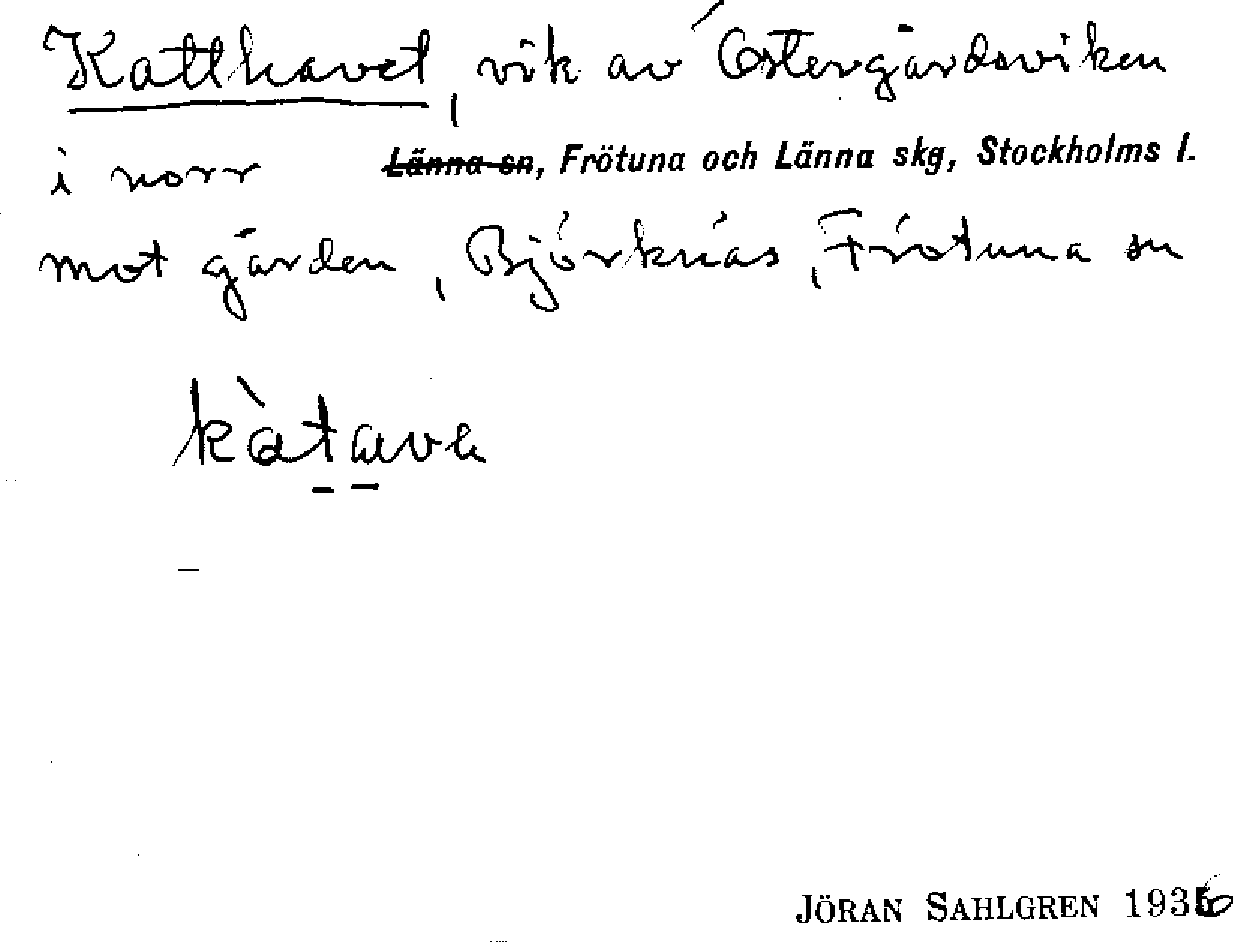 Katthavet, vik av Östergårdsviken
i norr Länna sn, Frötuna och Länna skg, Stockholms l.
mot gården, Björknäs, Frötuna sn
kàtava
JÖRAN SAHLGREN 1936